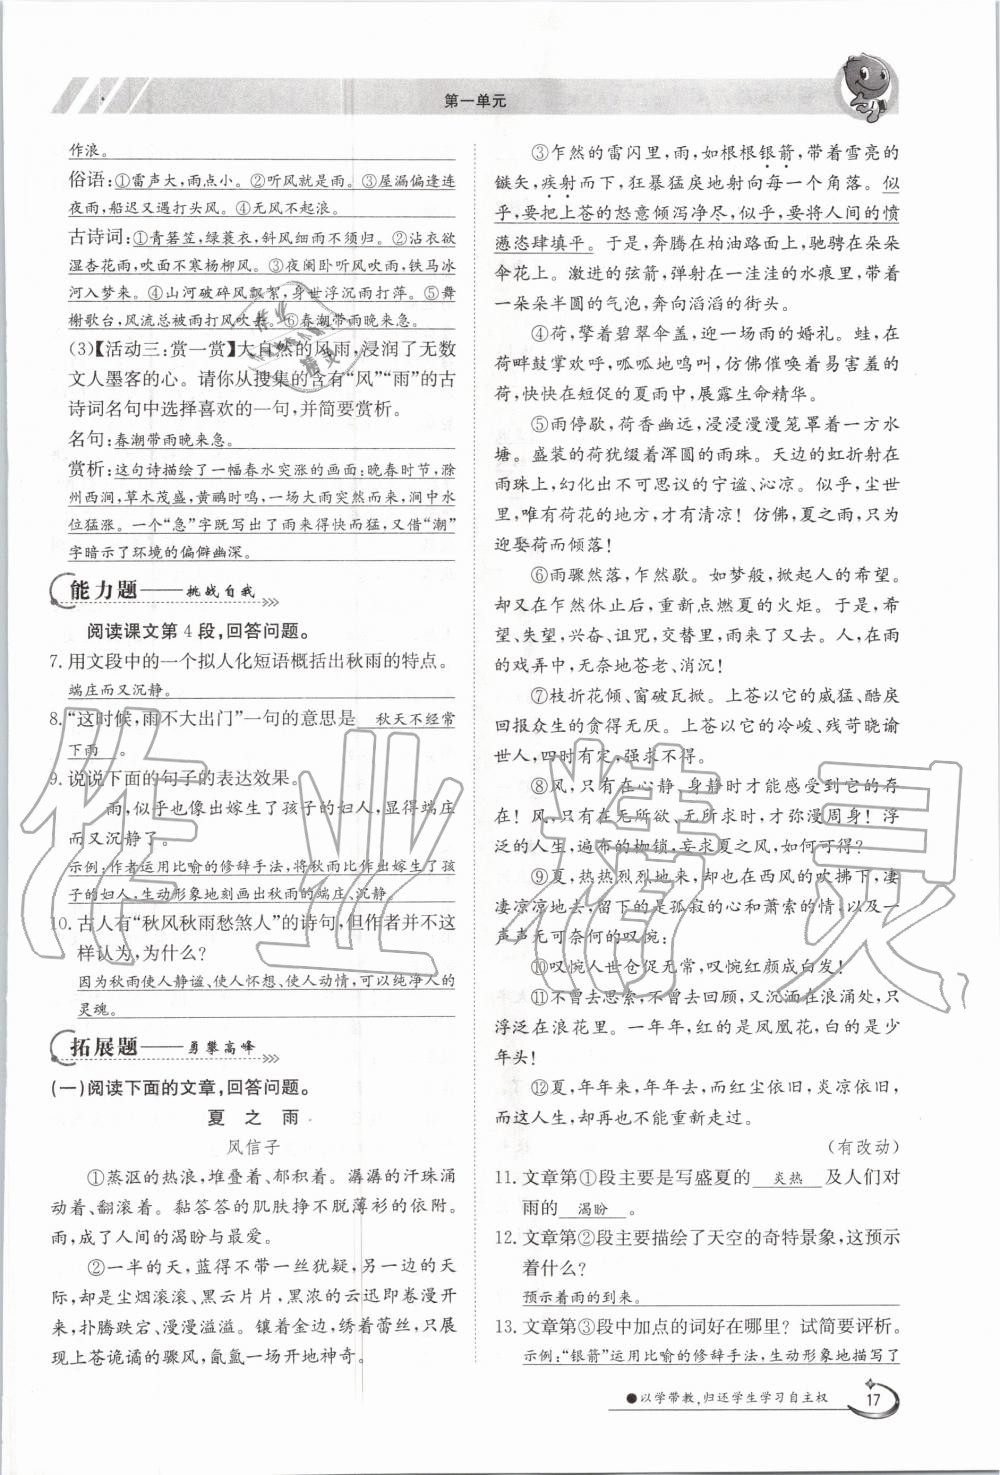 第一单元
作浪。
俗语:①雷声大,雨点小。②听风就是雨。③屋漏偏逢连
夜雨,船迟又遇打头风。④无风不起浪。
古诗词:①青箬笠,绿蓑衣,斜风细雨不须归。②沾衣欲
湿杏花雨,吹面不寒杨柳风。③夜阑卧听风吹雨,铁马冰
河入梦来。④山河破碎风飘絮,身世浮沉雨打萍。⑤舞
榭歌台,风流总被雨打风吹去。⑥春潮带雨晚来急。
(3)【活动三:赏一赏】大自然的风雨,浸润了无数
文人墨客的心。请你从搜集的含有“风”“雨”的古
诗词名句中选择喜欢的一句,并简要赏析。
名句:春潮带雨晚来急。
赏析:这句诗描绘了一幅春水突涨的画面:晚春时节,滁
州西涧,草木茂盛,黄鹂时鸣,一场大雨突然而来,涧中水
位猛涨。一个“急”字既写出了雨来得快而猛,又借“潮”
字暗示了环境的偏僻幽深。
能力题——挑战自我
阅读课文第 4 段,回答问题。
7. 用文段中的一个拟人化短语概括出秋雨的特点。
端庄而又沉静。
8. “这时候,雨不大出门”一句的意思是 秋天不经常
下雨 。
9. 说说下面的句子的表达效果。
雨,似乎也像出嫁生了孩子的妇人,显得端庄
而又沉静了。
示例:作者运用比喻的修辞手法,将秋雨比作出嫁生了孩
子的妇人,生动形象地刻画出秋雨的端庄、沉静。
10. 古人有“秋风秋雨愁煞人”的诗句,但作者并不这
样认为,为什么?
因为秋雨使人静谧、使人怀想、使人动情,可以纯净人的
灵魂。
拓展题——勇攀高峰
(一)阅读下面的文章,回答问题。
夏 之 雨
风信子
①蒸沤的热浪,堆叠着、郁积着。潺潺的汗珠涌
动着、翻滚着。黏答答的肌肤挣不脱薄衫的依附。
雨,成了人间的渴盼与最爱。
②一半的天,蓝得不带一丝犹疑。另一半的天
际,却是尘烟滚滚、黑云片片,黑浓的云迅即卷漫开
来,扑腾跌宕、漫漫溢溢。镶着金边,绣着蕾丝,只展
现上苍诡谲的骤风,氤氲一场开地神奇。
③乍然的雷闪里,雨,如根根银箭,带着雪亮的
镞矢,疾射而下,狂暴猛戾地射向每一个角落。似
乎,要把上苍的怒意倾泻净尽,似乎,要将人间的愤
懑恣肆填平。于是,奔腾在柏油路面上,驰骋在朵朵
伞花上。激进的弦箭,弹射在一洼洼的水痕里,带着
一朵朵半圆的气泡,奔向滔滔的街头。
④荷,擎着碧翠伞盖,如赴一场雨的婚礼。蛙,在
荷畔鼓掌欢呼,呱呱地鸣叫,仿佛催唤着易害羞的
荷,快快在短促的夏雨中,展露生命精华。
⑤雨停歇,荷香幽远,浸浸漫漫笼罩着一方水
塘。盛装的荷犹缀着浑圆的雨珠。天边的虹折射在
雨珠上,幻化出不可思议的宁谧、沁凉。似乎,尘世
里,唯有荷花的地方,才有清凉!仿佛,夏之雨,只为
迎娶荷而倾落!
⑥雨骤然落,乍然歇。如梦般,掀起人的希望。
却又在乍然休止后,重新点燃夏的火炬。于是,希
望、失望,兴奋、诅咒,交替里,雨来了又去了。人,在雨
的戏弄中,无奈地苍老、消沉!
⑦枝折花倾、窗破瓦掀。上苍以它的威猛、酷戾
回报众生的贪得无厌。上苍以它的冷峻、残苛晓谕
世人,四时有定,强求不得。
⑧风,只有在心静、身静时才能感受到它的存
在!风,只有在无所欲、无所求时,才弥漫周身!浮
泛的人生,遍布的枷锁,妄求夏之风,如何可得?
⑨夏,热热烈烈地来,却也在西风的吹拂下,凄
凄凉凉地去,留下的是孤寂的心和萧索的情,以及一
声声无可奈何的叹惋:
⑩叹惋人世仓促无常,叹惋红颜成白发!
⑪不曾去思索,不曾去探究,又沉湎在浪涌处,只
浮泛在浪花里。一年年,红的是凤凰花,白的是少
年头!
⑫夏,年年来,年年去,而红尘依旧,炎凉依旧,
而这人生,却不能重新走过。
(有改动)
11. 文章第①段主要是写盛夏的 炎热 及人们对
雨的 渴盼 。
12. 文章第②段主要描绘了天空的奇特景象,这预示
着什么?
预示着雨的到来。
13. 文章第③段中加点的词好在哪里?试简要评析。
示例:“银箭”运用比喻的修辞手法,生动形象地描写了
●以学带教,归还学生学习自主权
17
作业精灵